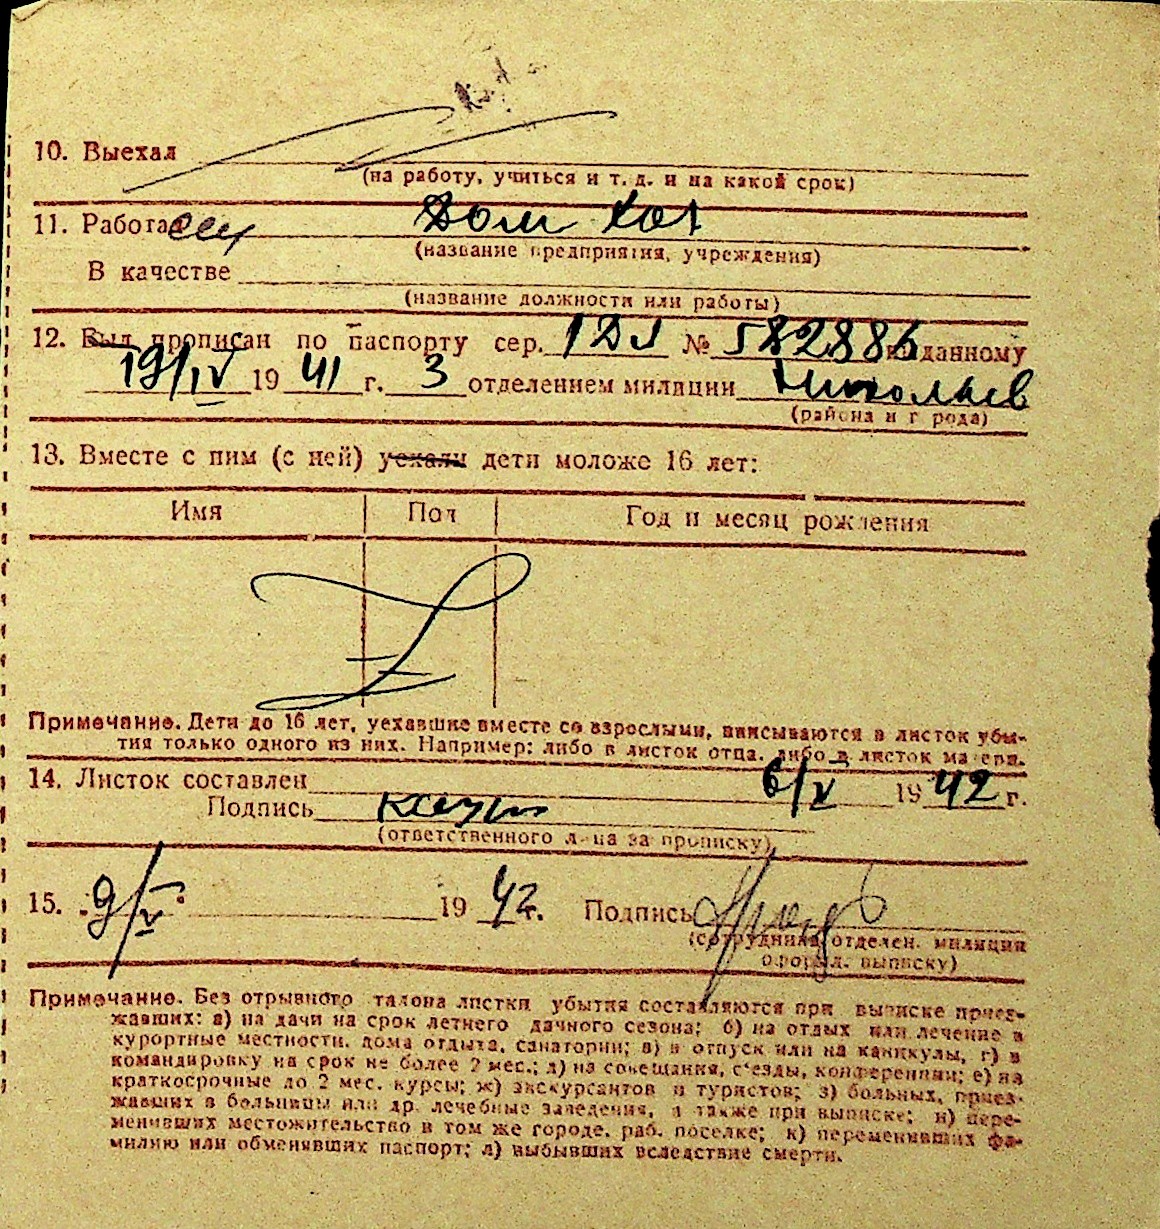 10. Выехал
(на работу, учиться и т. д. и на какой срок)
11. Работа Дом Хоз
(название предприятия, учреждения)
В качестве
(название должности или работы)
12. Был прописан по паспорту сер. № 582886 выданному
19/IV 19 41 г. 3 отделением милиции Николаев
(района и города)
13. Вместе с ним (с ней) уехали дети моложе 16 лет:
Имя Пол Год и месяц рождения
Примечание. Дети до 16 лет, уехавшие вместе со взрослыми, вписываются в листок убы-
тия только одного из них. Например: либо в листок отца, либо в листок матери.
14. Листок составлен 6/V 19 42 г.
Подпись
(ответственного лица за прописку)
15. "9/V" 19 42 г. Подпись
(сотрудника отделен. милиции
оформл. выписку)
Примечание. Без отрывного талона листки убытия составляются при выписке приез-
жавших: а) на дачи на срок летнего дачного сезона; б) на отдых или лечение в
курортные местности, дома отдыха, санатории; в) в отпуск или на каникулы, г) в
командировку на срок не более 2 мес.; д) на совещания, съезды, конференции; е) на
краткосрочные до 2 мес. курсы; ж) экскурсантов и туристов; з) больных, приез-
жавших в больницы или др. лечебные заведения, а также при выписке; и) пере-
менивших местожительство в том же городе, раб. поселке; к) переменивших фа-
милию или обменявших паспорт; л) выбывших вследствие смерти.